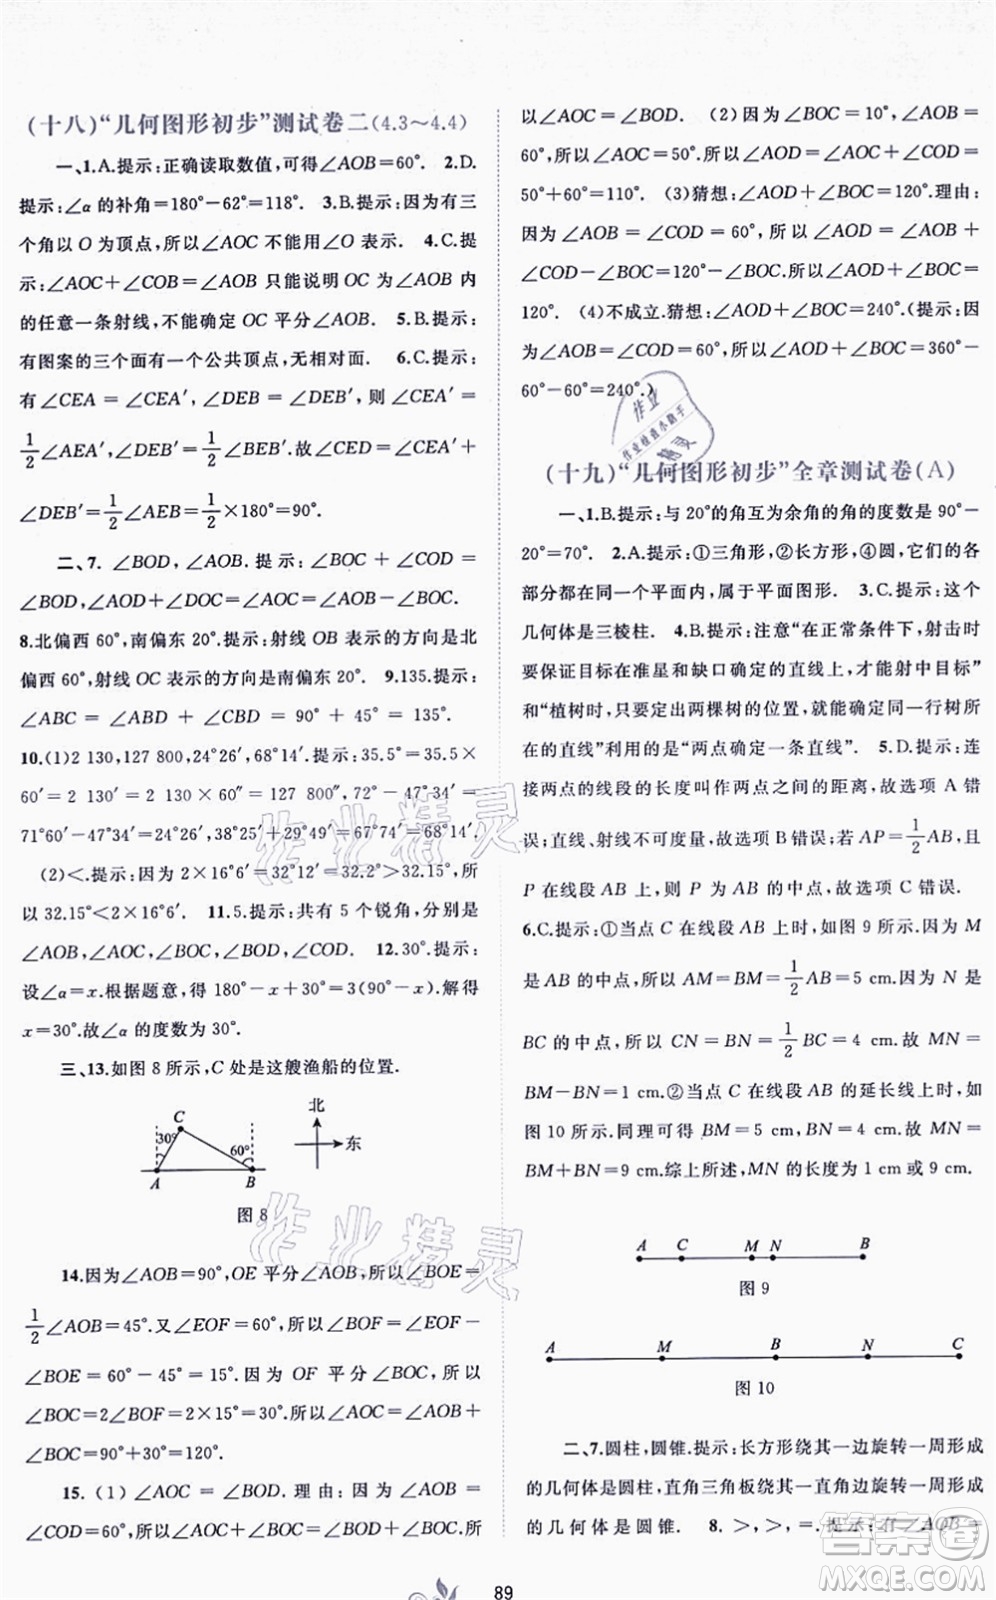 (十八)“几何图形初步”测试卷二(4.3～4.4)
一、1.A.提示:正确读取数值,可得∠AOB=60°. 2.D.
提示:∠α的补角=180°-62°=118°. 3.B.提示:因为有三
个角以O为顶点,所以∠AOC不能用∠O表示. 4.C.提
示:∠AOC+∠COB=∠AOB只能说明OC为∠AOB内
的任意一条射线,不能确定OC平分∠AOB. 5.B.提示:
有图案的三个面有一个公共顶点,无相对面. 6.C.提示:
有∠CEA=∠CEA′,∠DEB=∠DEB′,则∠CEA′=
1/2∠AEA′,∠DEB′=1/2∠BEB′.故∠CED=∠CEA′+
∠DEB′=1/2∠AEB=1/2×180°=90°.
二、7. ∠BOD,∠AOB.提示:∠BOC+∠COD=
∠BOD,∠AOD+∠DOC=∠AOC=∠AOB+∠BOC.
8.北偏西60°,南偏东20°.提示:射线OB表示的方向是北
偏西60°,射线OC表示的方向是南偏东20°. 9.135.提示:
∠ABC=∠ABD+∠CBD=90°+45°=135°.
10.(1)2 130,127 800,24°26′,68°14′.提示:35.5°=35.5×
60′=2 130′=2 130×60″=127 800″,72°-47°34′=
71°60′-47°34′=24°26′,38°25′+29°49′=67°74′=68°14′.
(2)<.提示:因为2×16°6′=32°12′=32.2°>32.15°,所
以32.15°<2×16°6′. 11.5.提示:共有5个锐角,分别是
∠AOB,∠AOC,∠BOC,∠BOD,∠COD. 12.30°.提示:
设∠α=x.根据题意,得180°-x+30°=3(90°-x).解得
x=30°.故∠α的度数为30°.
三、13.如图8所示,C处是这艘渔船的位置.
北
C
30°
60°
东
A
B
图8
14.因为∠AOB=90°,OE平分∠AOB,所以∠BOE=
1/2∠AOB=45°.又∠EOF=60°,所以∠BOF=∠EOF-
∠BOE=60°-45°=15°.因为OF平分∠BOC,所以
∠BOC=2∠BOF=2×15°=30°.所以∠AOC=∠AOB+
∠BOC=90°+30°=120°.
15. (1)∠AOC=∠BOD.理由:因为∠AOB=
∠COD=60°,所以∠AOC+∠BOC=∠BOD+∠BOC.所
以∠AOC=∠BOD. (2)因为∠BOC=10°,∠AOB=
60°,所以∠AOC=50°.所以∠AOD=∠AOC+∠COD=
50°+60°=110°. (3)猜想:∠AOD+∠BOC=120°.理由:
因为∠AOB=∠COD=60°,所以∠AOD=∠AOB+
∠COD-∠BOC=120°-∠BOC.故∠AOD+∠BOC=
120°. (4)不成立.猜想:∠AOD+∠BOC=240°.(提示:因
为∠AOB=∠COD=60°,所以∠AOD+∠BOC=360°-
60°-60°=240°.)
(十九)“几何图形初步”全章测试卷(A)
一、1.B.提示:与20°的角互为余角的角的度数是90°-
20°=70°. 2.A.提示:①三角形,②长方形,④圆,它们的各
部分都在同一个平面内,属于平面图形. 3.C.提示:这个
几何体是三棱柱. 4.B.提示:注意“在正常条件下,射击时
要保证目标在准星和缺口确定的直线上,才能射中目标”
和“植树时,只要定出两棵树的位置,就能确定同一行树所
在的直线”利用的是“两点确定一条直线”. 5.D.提示:连
接两点的线段的长度叫作两点之间的距离,故选项A错
误;直线、射线不可度量,故选项B错误;若AP=1/2AB,且
P在线段AB上,则P为AB的中点,故选项C错误.
6.C.提示:①当点C在线段AB上时,如图9所示.因为M
是AB的中点,所以AM=BM=1/2AB=5 cm.因为N是
BC的中点,所以CN=BN=1/2BC=4 cm.故MN=
BM-BN=1 cm.②当点C在线段AB的延长线上时,如
图10所示.同理可得BM=5 cm,BN=4 cm.故MN=
BM+BN=9 cm.综上所述,MN的长为1 cm或9 cm.
A C M N B
图9
A M B N C
图10
二、7.圆柱,圆锥.提示:长方形绕其一边旋转一周形成
的几何体是圆柱,直角三角板绕其一直角边旋转一周形成
的几何体是圆锥. 8. >,>,=.提示:有∠AOB=
89
作业精灵
作业精灵
作业
作业检查小助手
精灵
答案圈
MXQE.COM